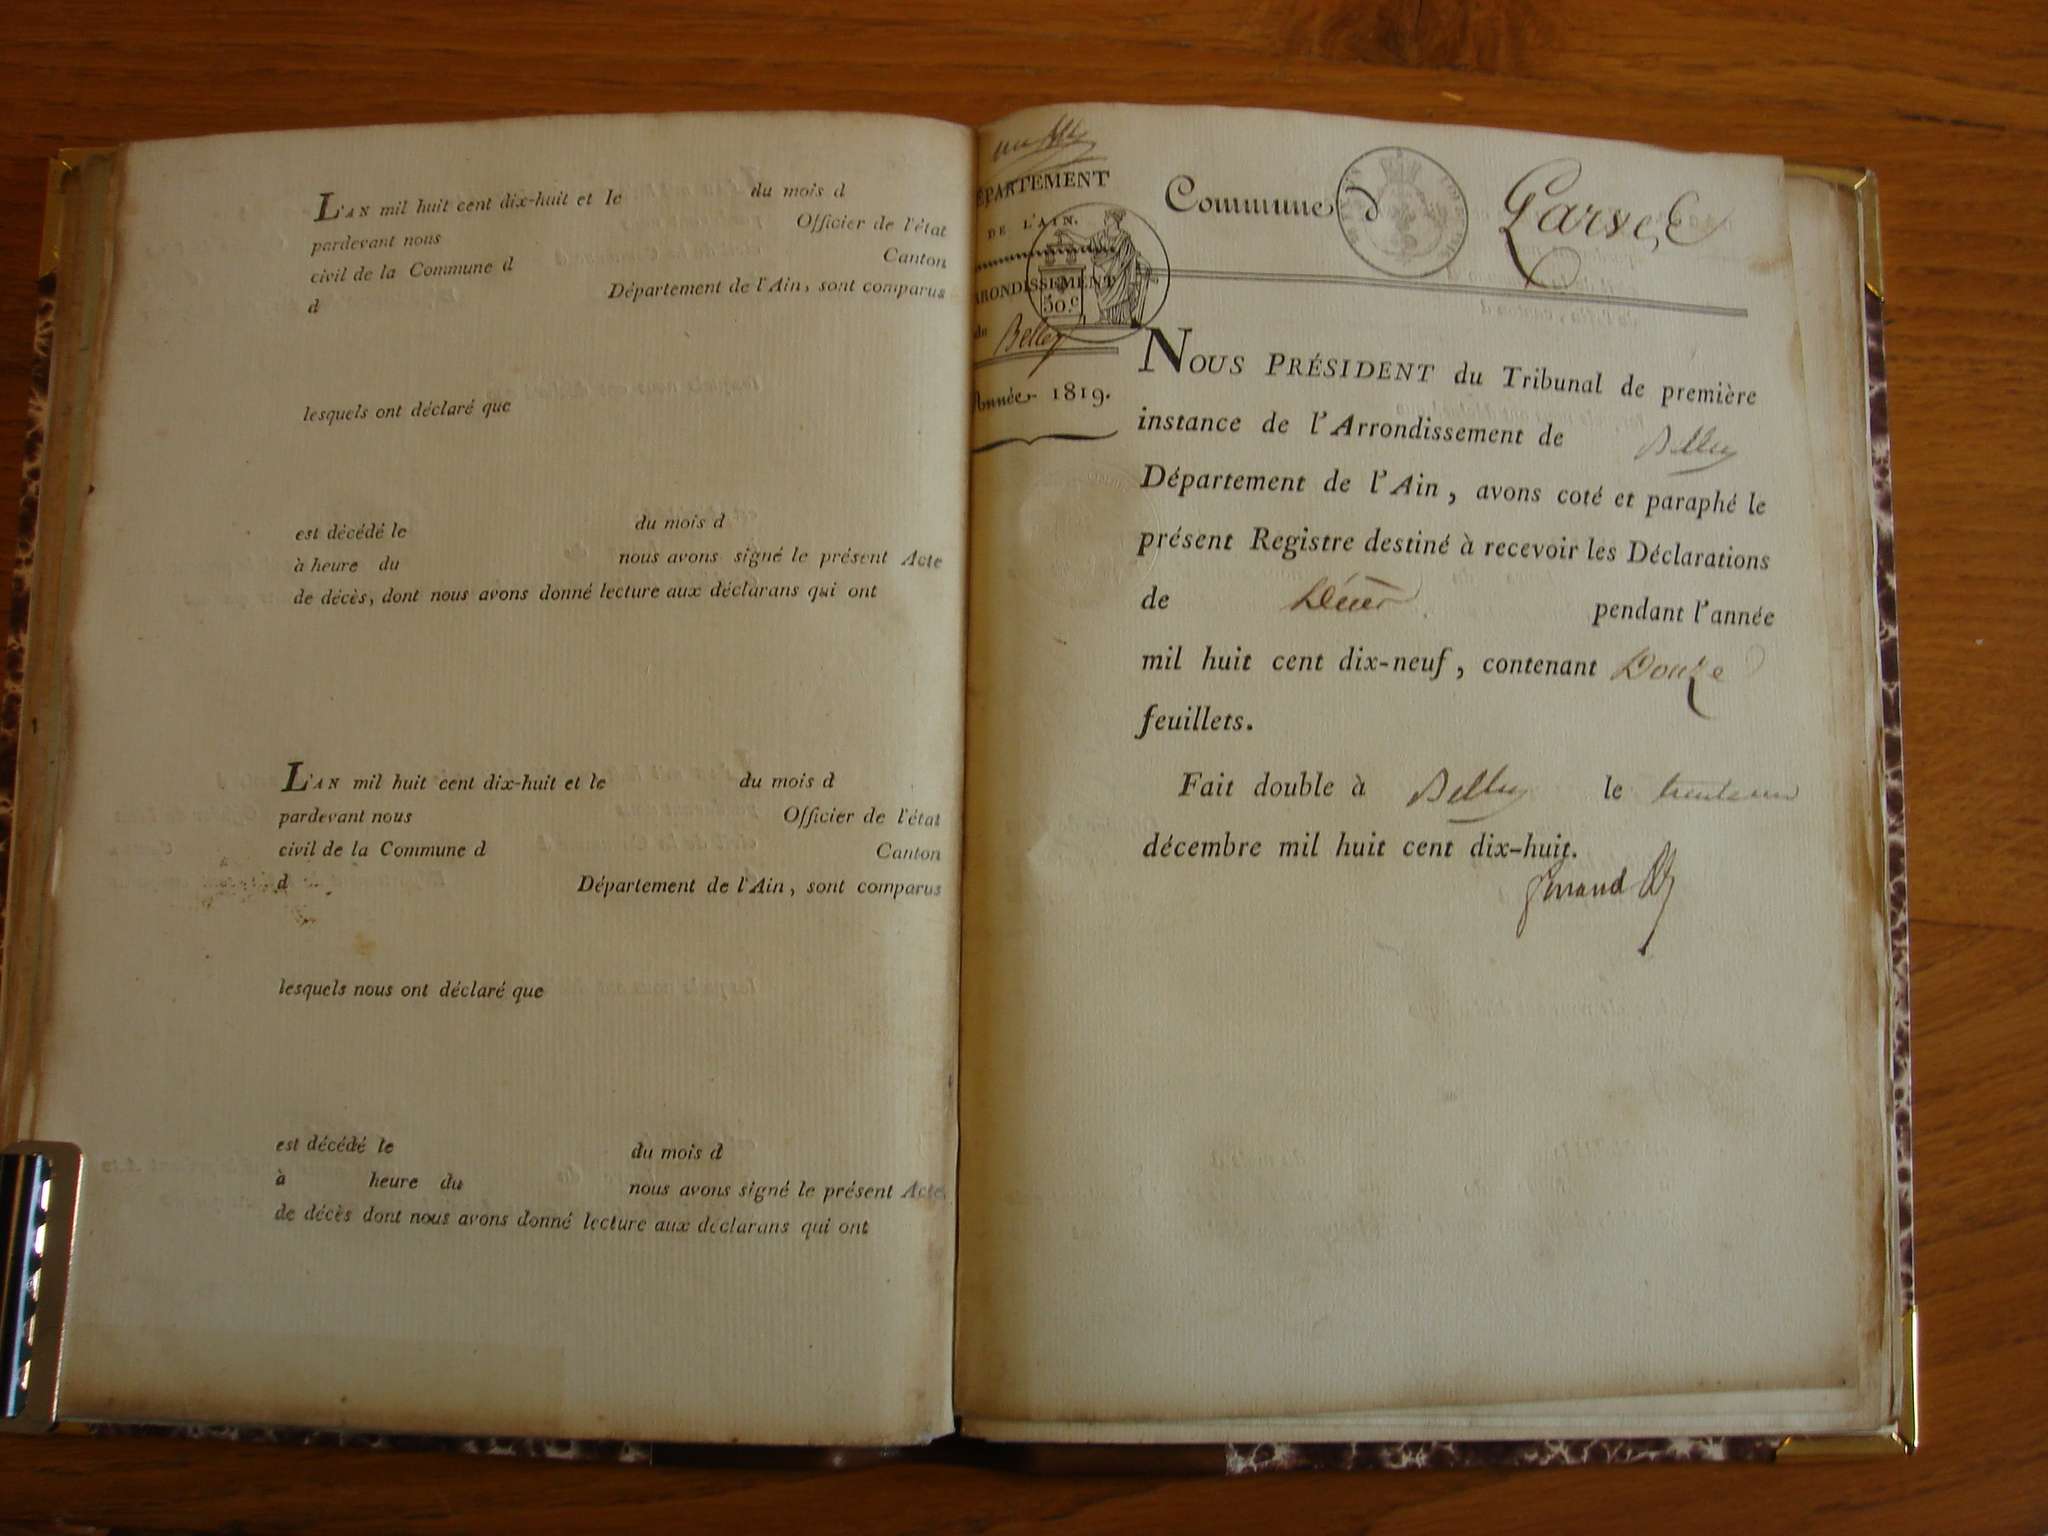 L'AN mil huit cent dix-huit et le du mois d
pardevant nous Officier de l'état
civil de la Commune d Canton
d Département de l'Ain, sont comparus
lesquels ont déclaré que
est décédé le du mois d
à heure du nous avons signé le présent Acte
de décès, dont nous avons donné lecture aux déclarans qui ont
L'AN mil huit cent dix-huit et le du mois d
pardevant nous Officier de l'état
civil de la Commune d Canton
d Département de l'Ain, sont comparus
lesquels nous ont déclaré que
est décédé le du mois d
à heure du nous avons signé le présent Acte
de décès dont nous avons donné lecture aux déclarans qui ont
ÉPARTEMENT
DE L'AIN.
ARRONDISSEMENT
50.c
de Belley
Année 1819.
Commune d
NOUS PRÉSIDENT du Tribunal de première
instance de l'Arrondissement de Belley
Département de l'Ain, avons coté et paraphé le
présent Registre destiné à recevoir les Déclarations
de Décès pendant l'année
mil huit cent dix-neuf, contenant Douze
feuillets.
Fait double à Belley le trente un
décembre mil huit cent dix-huit.